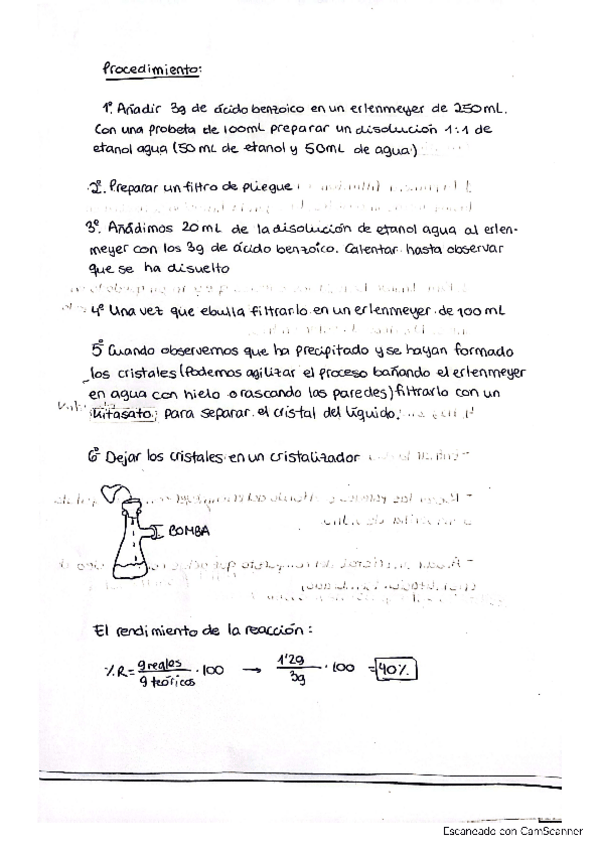 Procedimiento:
1º. Añadir 3g de ácido benzoico en un erlenmeyer de 250mL.
Con una probeta de 100mL preparar un disolución 1:1 de
etanol agua (50 mL de etanol y 50mL de agua)
2º. Preparar un filtro de pliegue
3º. Añádimos 20mL de la disolución de etanol agua al erlen-
meyer con los 3g de ácido benzoico. Calentar hasta observar
que se ha disuelto
4º Una vez que ebulla filtrarlo en un erlenmeyer de 100mL
5º Cuando observemos que ha precipitado y se hayan formado
los cristales (Podemos agilizar el proceso bañando el erlenmeyer
en agua con hielo o rascando las paredes) filtrarlo con un
kitasato para separar el cristal del líquido.
6º Dejar los cristales en un cristalizador
BOMBA
El rendimiento de la reacción:
%R = g reales / g teóricos · 100 → 1'2g / 3g · 100 = 40%
Escaneado con CamScanner